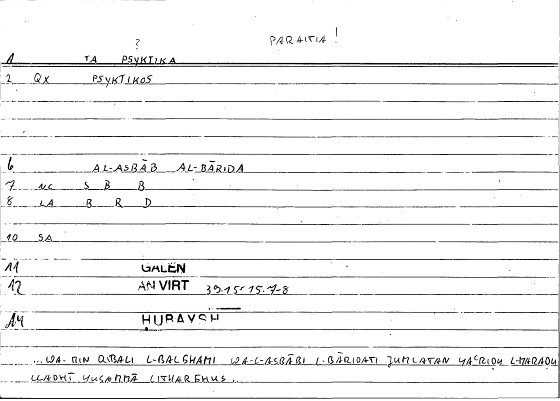 ?
PARAITIA!
1 TA PSYKTIKA
2 QX PSYKTIKOS
6 AL-ASBĀB AL-BĀRIDA
7 NC S B B
8 LA B R D
10 SA
11 GALEN
12 AN VIRT 39.15-15.7-8
14 HUBAYSH
...WA-MIN QIBALI L-BALGHAMI WA-L-ASBĀBI L-BĀRIDATI JUMLATAN YAʿRIḌU L-MARAḌU
LLADHĪ YUSAMMĀ LITHARGHUS..